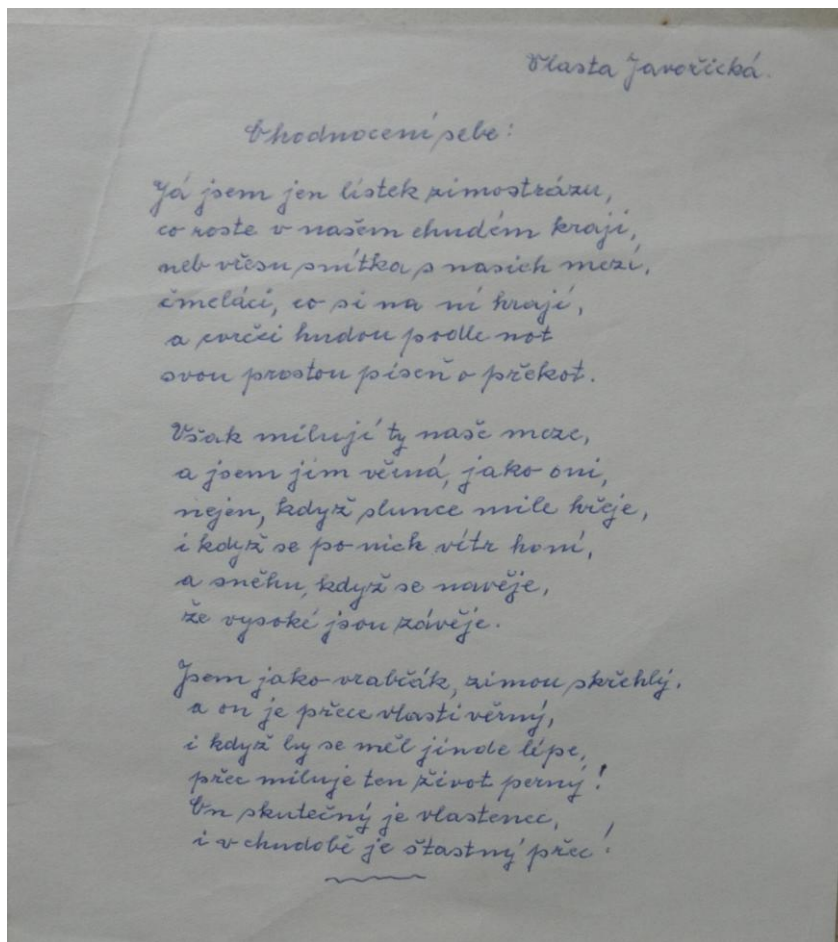 Vlasta Javořická.
Ohodnocení sebe:
Já jsem jen lístek zimostrázu,
co roste v našem chudém krají,
neb vřesu snítka s nasich mezí,
čmeláci, co si na ní hrají,
a cvrčci hudou podle not
svou prostou píseň o překot.
Však milují ty naše meze,
a jsem jim věrná, jako oni,
nejen, když slunce mile hřeje,
i když se po nich vítr honí,
a sněhu, když se navěje,
že vysoké jsou závěje.
Jsem jako vrabčák, zimou skřehlý.
a on je přece vlasti věrný,
i když by se měl jinde lépe,
přec miluje ten život perný!
On skutečný je vlastenec,
i v chudobě je šťastný přec!